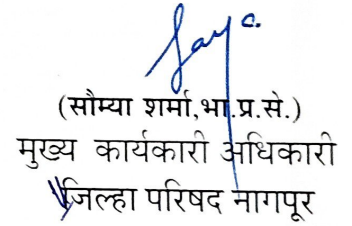 (सौम्या शर्मा,भा.प्र.से.)
मुख्य कार्यकारी अधिकारी
जिल्हा परिषद नागपूर